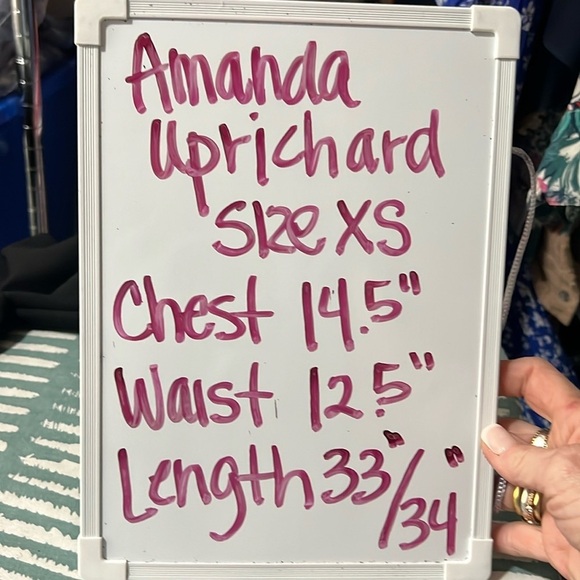 Amanda
Uprichard
Size XS
Chest 14.5"
Waist 12.5"
Length 33"/34"